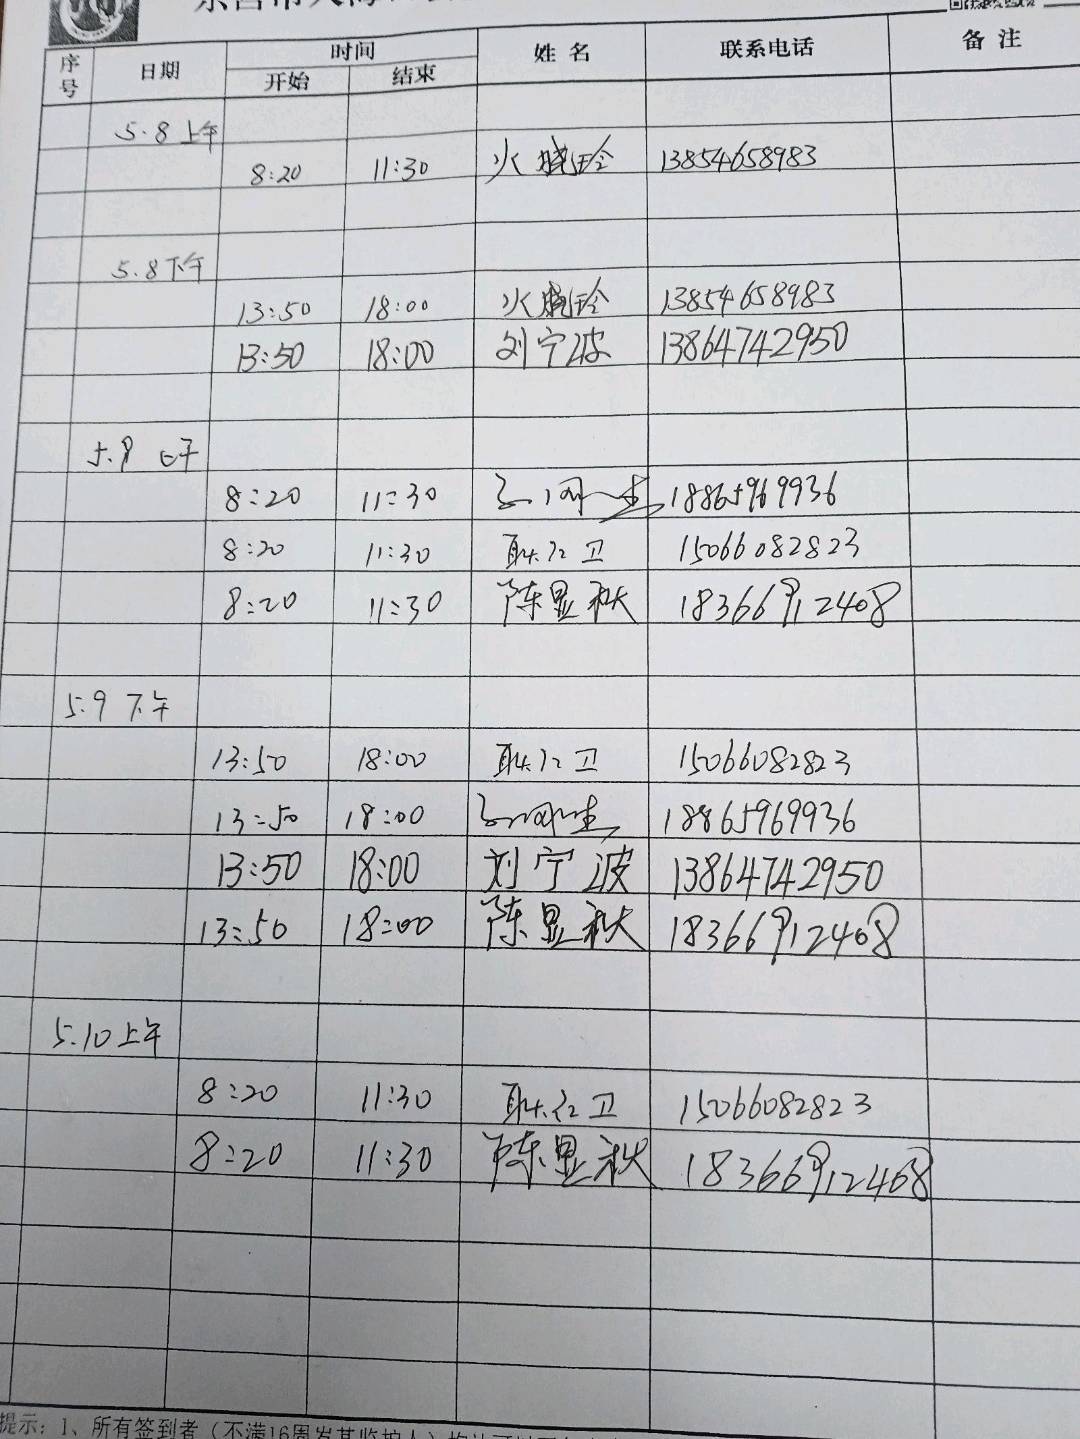 序号 日期 时间 姓名 联系电话 备注
开始 结束
5.8 上午
8:20 11:30 火晓玲 13854658983
5.8 下午
13:50 18:00 火晓玲 13854658983
13:50 18:00 刘宁波 13864742950
5.9 上午
8:20 11:30 18865969936
8:20 11:30 耿红卫 15066082823
8:20 11:30 陈显秋 18366912408
5.9 下午
13:50 18:00 耿红卫 15066082823
13:50 18:00 18865969936
13:50 18:00 刘宁波 13864742950
13:50 18:00 陈显秋 18366912408
5.10 上午
8:20 11:30 耿红卫 15066082823
8:20 11:30 陈显秋 18366912408
提示：1、所有签到者（不满16周岁其监护人）